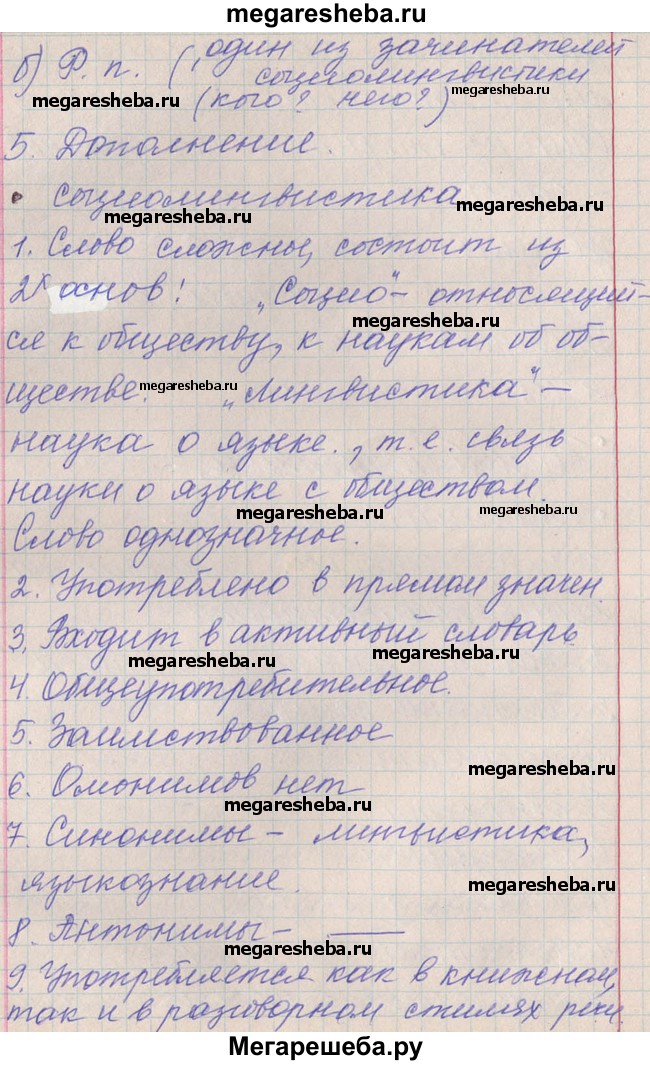 megaresheba.ru
б) Р. п. (один из зачинателей
социолингвистики
megaresheba.ru
megaresheba.ru
(кого? чего?)
5. Дополнение.
• социолингвистика
megaresheba.ru
1. Слово сложные, состоит из
2х основ! „Социо"- относящий-
megaresheba.ru
ся к обществу, к наукам об об-
ществе. „Лингвистика" –
megaresheba.ru
наука о языке., т.е. связь
науки о языке с обществом.
megaresheba.ru
megaresheba.ru
Слово однозначное.
2. Употреблено в прямом значен.
3. Входит в активный словарь.
megaresheba.ru
megaresheba.ru
4. Общеупотребительное.
5. Заимствованное
megaresheba.ru
6. Омонимов нет
megaresheba.ru
7. Синонимы – лингвистика,
языкознание.
megaresheba.ru
8. Антонимы – ——
megaresheba.ru
9. Употребляется как в книжном,
так и в разговорном стилях речи.
Мегарешеба.ру